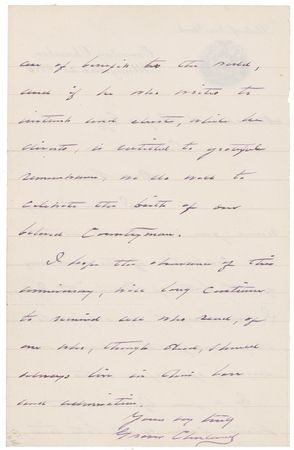 are of benefit to the world,
and if he who writes to
instruct and elevate, while he
diverts, is entitled to grateful
remembrance, we do well to
celebrate the birth of our
beloved Countryman.
I hope the observance of this
anniversary, will long continue
to remind all who read, of
one who, though dead, should
always live in their love
and admiration.
Yours very truly
Grover Cleveland